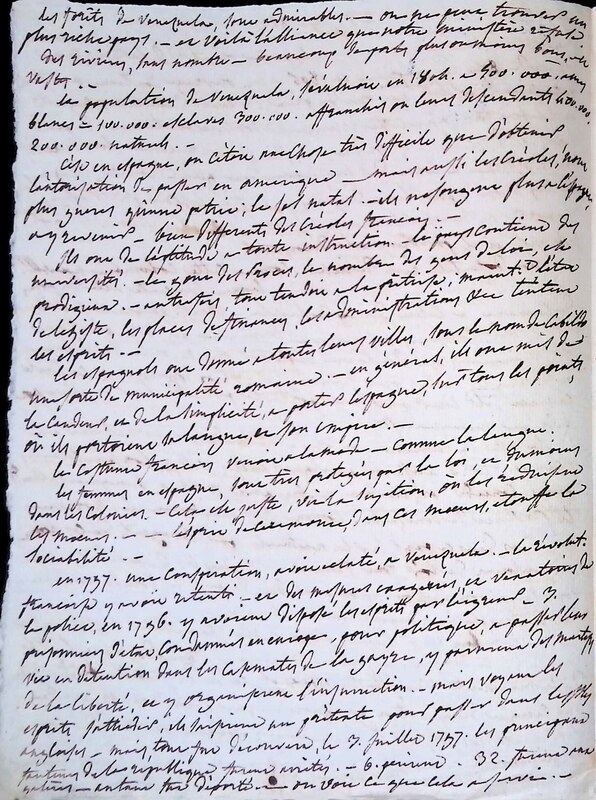 les forêts de Venezuela, sont admirables. – on ne peut trouver un
plus riche pays. – et voilà l'alliance que notre ministère refuse
des rivières, sans nombre – beaucoup de ports plus ou moins bons, et
vastes. –
la population de Venezuela, s'évaluoit en 1804. a 900.000. ames
blancs – 100.000. esclaves 300.000. affranchis ou leurs descendants 400.000.
200.000 naturels. –
C'est en espagne, on Citoit une chose très difficile que d'obtenir
l'autorisation de passer en amerique – mais aussi, les Créoles, n'ont
plus gueres qu'une patrie; le sol natal. – ils ne songent plus a l'espagne,
a y revenir – bien différents des Créoles français. –
Ils ont de l'aptitude a toute instruction. – le pays contient des
universités. – le gout des procès, le nombre des gens de loi, est
prodigieux. – autrefois, tout tendoit a la prêtrise; maintt l'état
de légiste, les places de finances, les administrations &ce tentent
les esprits. –
les espagnols ont donné a toutes leurs villes, sous le nom de Cabildo
une sorte de municipalité romaine. – en général, ils ont mis de
la Candeur, et de la simplicité, a porter l'espagne, sur tous les points,
où ils portoient sa langue, et son empire. –
le Costume français venoit a la mode – comme la langue.
les femmes en espagne, sont très protégées par la loi, et du moins
dans les Colonies. – Cela est juste, vu la sujétion, où les réduisent
les moeurs. – l'esprit de Cérémonie, dans ces moeurs, étouffe la
sociabilité. –
en 1797. une Conspiration, avoit éclaté, a Venezuela. – la révolut.
française y avoit retenti – et des mesures exagérées, et vexatoires de
la police, en 1796. y avoient disposé les esprits par l'aigreur – 3.
prisonniers d'état condamnés en espagne, pour politique, a passer leur
vie en détention dans les Casemates de la guayra, y parurent des martyrs
de la liberté, et y organiserent l'insurrection. – mais voyant les
esprits s'attiédir, ils prirent un prétexte pour passer dans les isles
angloises – mais, tout fut découvert, le 3. Juillet 1797. les principaux
fauteurs de la république furent arrêtés. – 6. périrent. 32. furent aux
galères – autant fut déporté – on voit ce que cela a servi. –